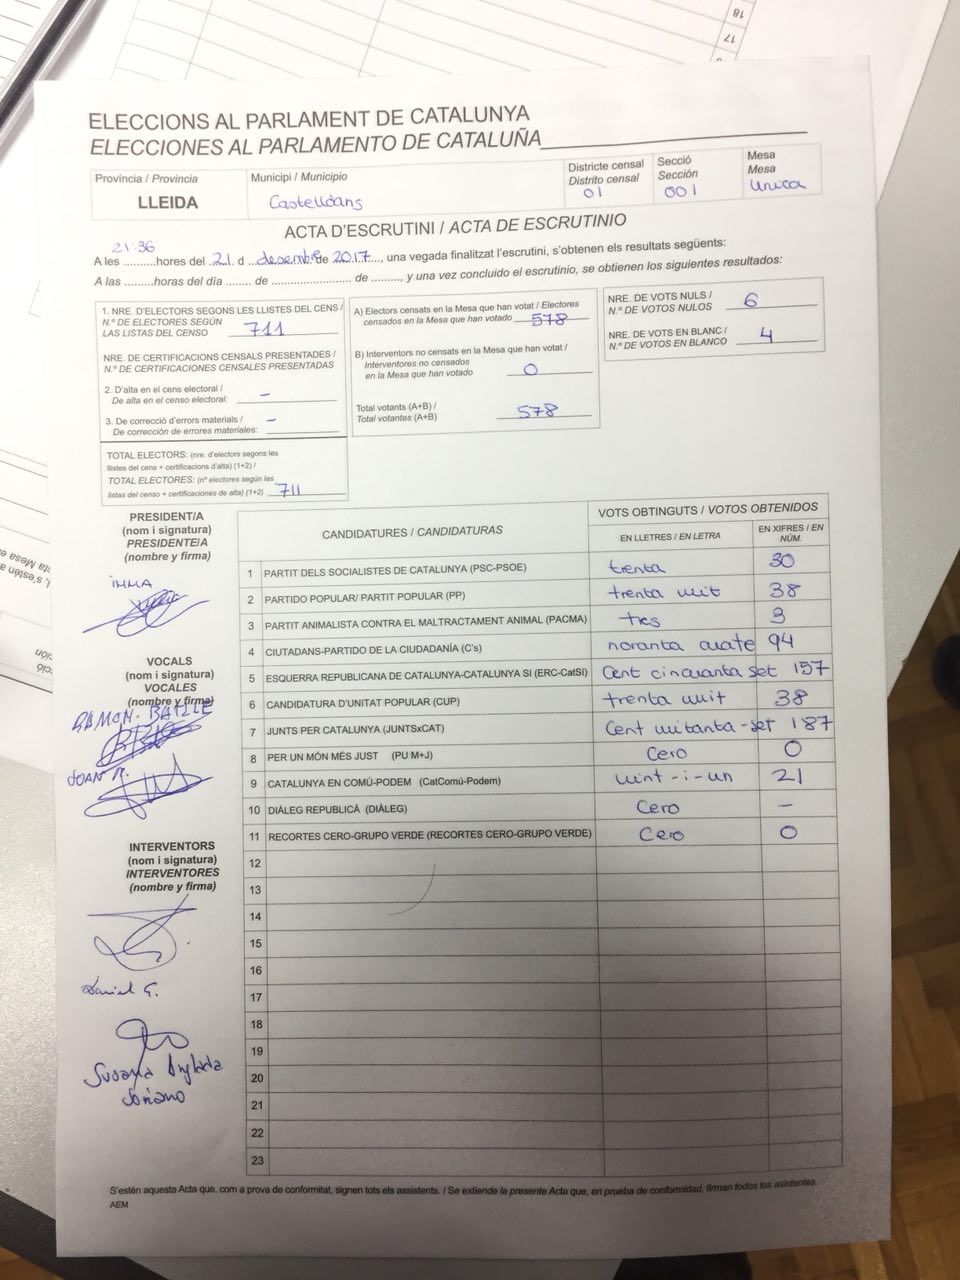 18
17
ELECCIONS AL PARLAMENT DE CATALUNYA
ELECCIONES AL PARLAMENTO DE CATALUÑA
Província / Provincia
LLEIDA
Municipi / Municipio
Castelldans
Districte censal
Distrito censal
01
Secció
Sección
001
Mesa
Mesa
Unica
ACTA D'ESCRUTINI / ACTA DE ESCRUTINIO
21:36
A les ..........hores del .21. d ...desembre de 2017..., una vegada finalitzat l'escrutini, s'obtenen els resultats següents:
A las .........horas del día ....... de ........................ de ........., y una vez concluido el escrutinio, se obtienen los siguientes resultados:
1. NRE. D'ELECTORS SEGONS LES LLISTES DEL CENS /
N.º DE ELECTORES SEGÚN
LAS LISTAS DEL CENSO 711
NRE. DE CERTIFICACIONS CENSALS PRESENTADES /
N.º DE CERTIFICACIONES CENSALES PRESENTADAS
2. D'alta en el cens electoral /
De alta en el censo electoral: –
3. De correcció d'errors materials /
De corrección de errores materiales: –
TOTAL ELECTORS: (nre. d'electors segons les
llistes del cens + certificacions d'alta) (1+2) /
TOTAL ELECTORES: (nº electores según las
listas del censo + certificaciones de alta) (1+2) 711
A) Electors censats en la Mesa que han votat / Electores
censados en la Mesa que han votado 578
B) Interventors no censats en la Mesa que han votat /
Interventores no censados
en la Mesa que han votado 0
Total votants (A+B) /
Total votantes (A+B) 578
NRE. DE VOTS NULS /
N.º DE VOTOS NULOS 6
NRE. DE VOTS EN BLANC /
N.º DE VOTOS EN BLANCO 4
PRESIDENT/A
(nom i signatura)
PRESIDENTE/A
(nombre y firma)
IMMA
VOCALS
(nom i signatura)
VOCALES
(nombre y firma)
RAMON. BATLLE
JOAN R.
INTERVENTORS
(nom i signatura)
INTERVENTORES
(nombre y firma)
Daniel G.
Susana Anglada
Soriano
CANDIDATURES / CANDIDATURAS
VOTS OBTINGUTS / VOTOS OBTENIDOS
EN LLETRES / EN LETRA
EN XIFRES / EN
NÚM.
1 PARTIT DELS SOCIALISTES DE CATALUNYA (PSC-PSOE) trenta 30
2 PARTIDO POPULAR/ PARTIT POPULAR (PP) trenta uuit 38
3 PARTIT ANIMALISTA CONTRA EL MALTRACTAMENT ANIMAL (PACMA) tres 3
4 CIUTADANS-PARTIDO DE LA CIUDADANÍA (C's) noranta cuate 94
5 ESQUERRA REPUBLICANA DE CATALUNYA-CATALUNYA SI (ERC-CatSí) Cent cincuanta set 157
6 CANDIDATURA D'UNITAT POPULAR (CUP) trenta uuit 38
7 JUNTS PER CATALUNYA (JUNTSxCAT) Cent uitanta-set 187
8 PER UN MÓN MÉS JUST (PU M+J) Cero 0
9 CATALUNYA EN COMÚ-PODEM (CatComú-Podem) vint-i-un 21
10 DIÀLEG REPUBLICÀ (DIÀLEG) Cero –
11 RECORTES CERO-GRUPO VERDE (RECORTES CERO-GRUPO VERDE) Cero 0
12
13
14
15
16
17
18
19
20
21
22
23
S'estén aquesta Acta que, com a prova de conformitat, signen tots els assistents. / Se extiende la presente Acta que, en prueba de conformidad, firman todos los asistentes.
AEM